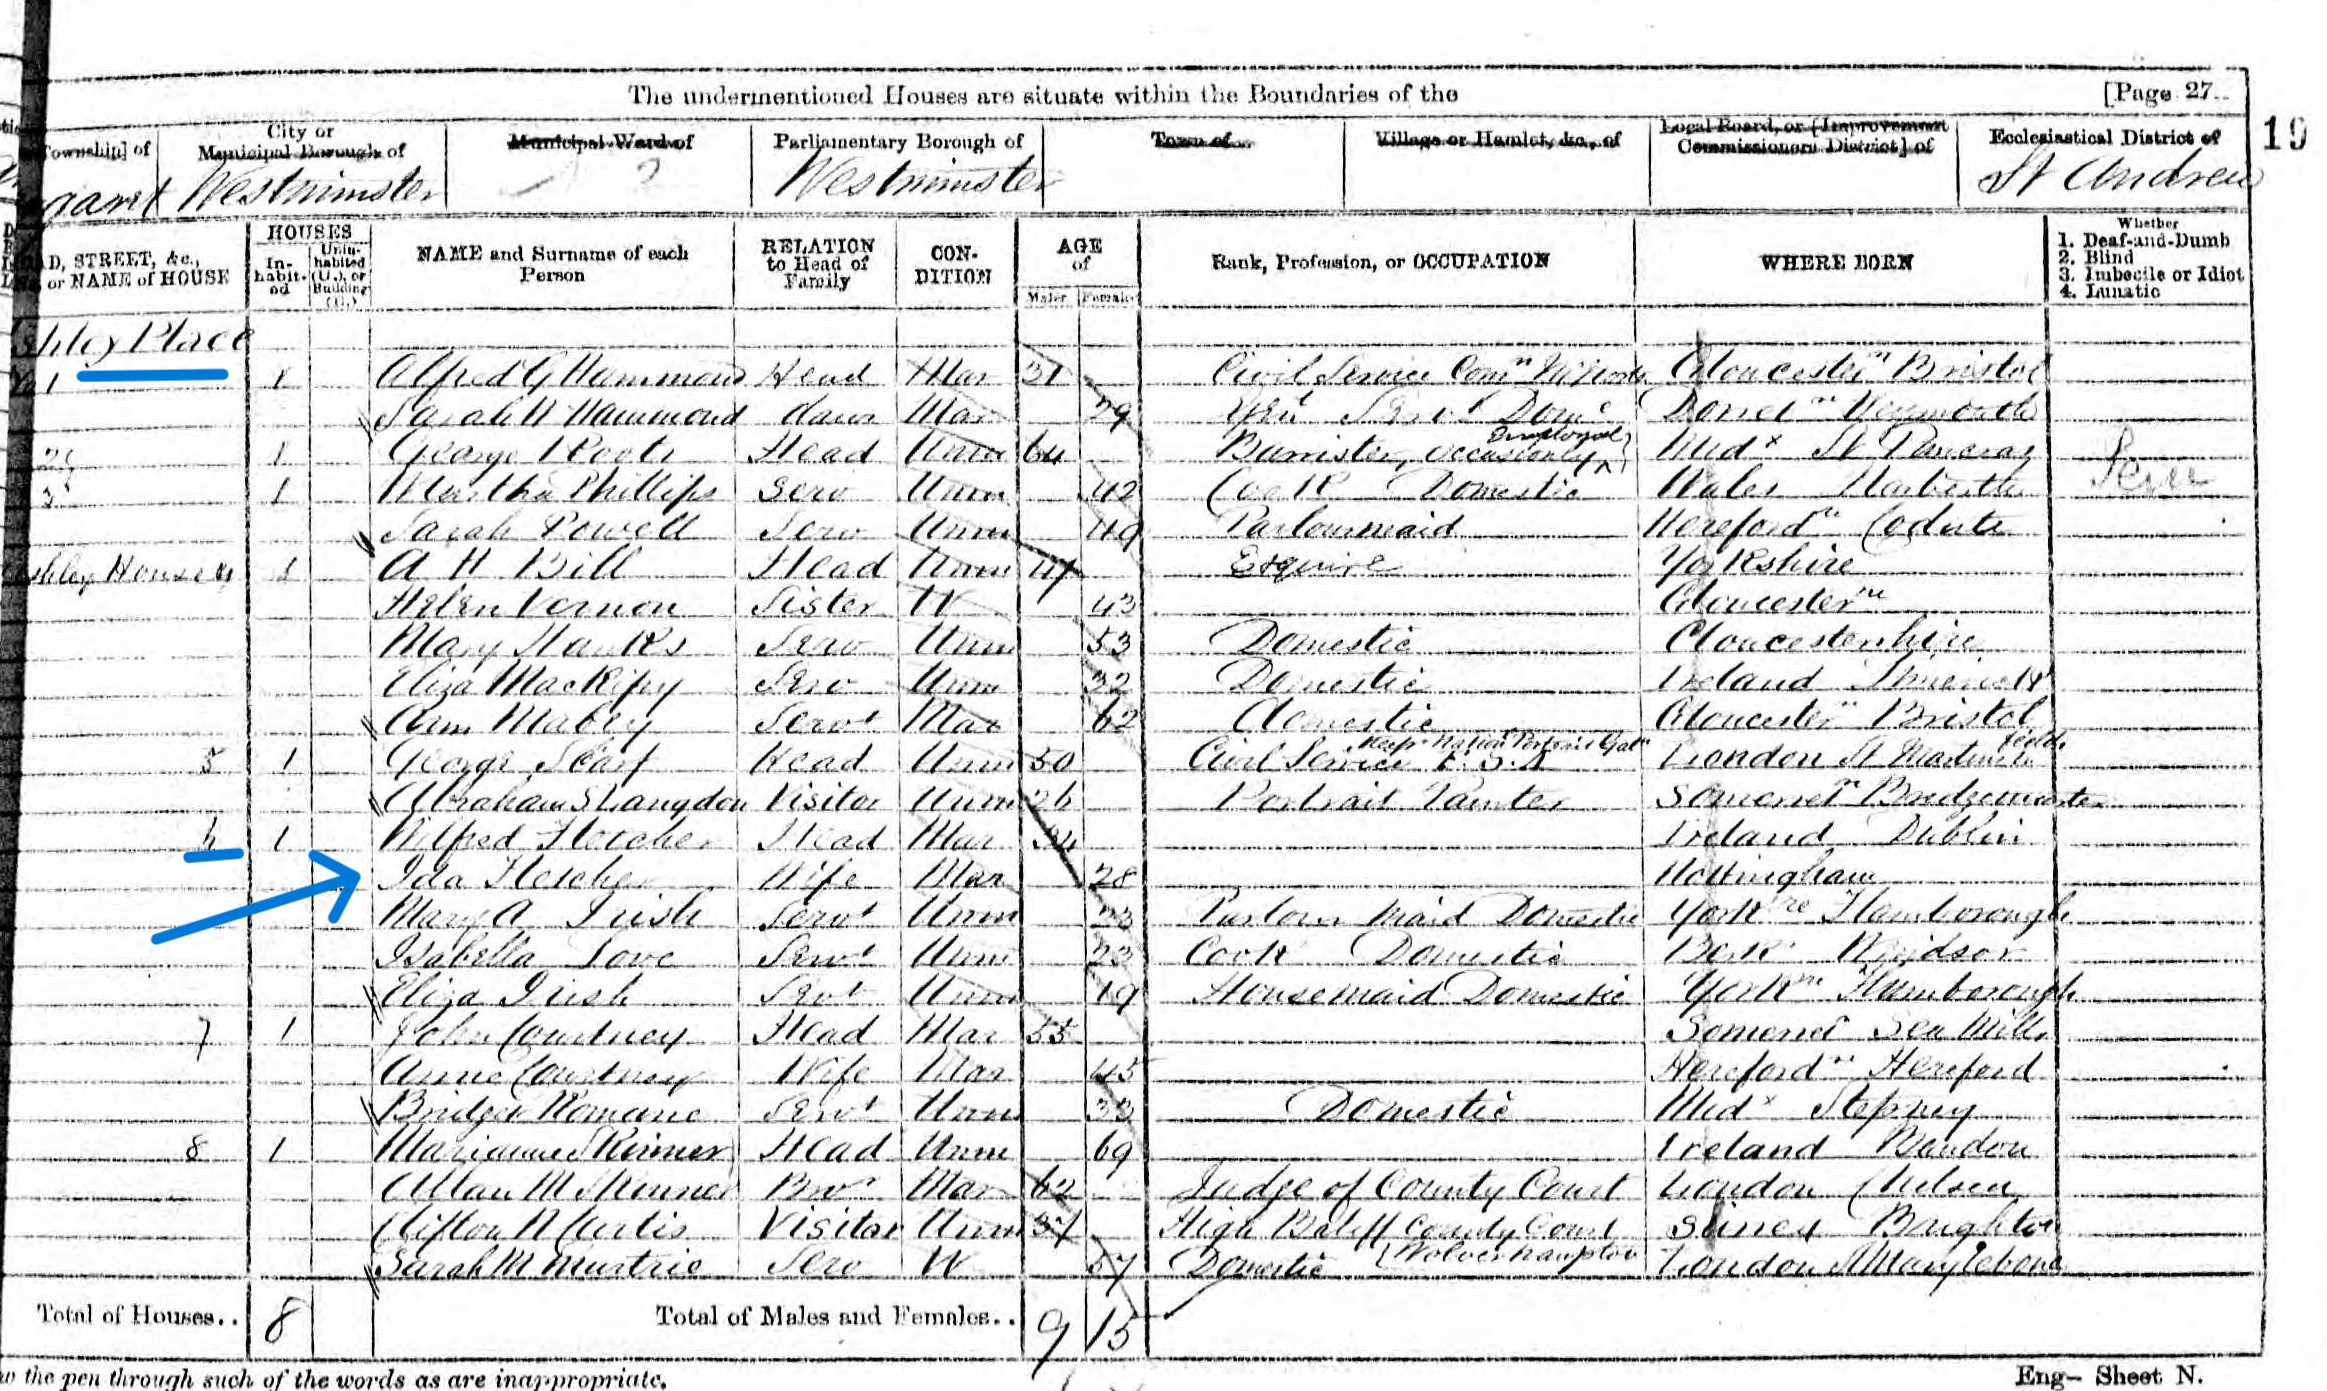 The undermentioned Houses are situate within the Boundaries of the [Page 27.
Township] of City or Municipal Borough of Municipal Ward of Parliamentary Borough of Town of Village or Hamlet, &c., of Local Board, or [Improvement Commissioners District] of Ecclesiastical District of 19
garet Westminster Westminster St Andrew
D, STREET, &c., or NAME of HOUSE HOUSES In-habit-ed Unin-habited (U.), or Building (B.) NAME and Surname of each Person RELATION to Head of Family CON-DITION AGE of Males Females Rank, Profession, or OCCUPATION WHERE BORN Whether 1. Deaf-and-Dumb 2. Blind 3. Imbecile or Idiot 4. Lunatic
shley Place
1 Alfred G Hammond Head Mar 31 Civil Service Comn Gloucesterre Bristol
Sarah N Hammond Mar 29 Genl Servt Domc Dorsetre Weymouth
1 George Head Unm 64 Barrister, occasionly Employed Midx St Pancras
1 Martha Phillips Serv Unm 42 Cook Domestic Wales Narberth
Sarah Powell Serv Unm 49 Parlourmaid Herefordre
shley House 1 A H Bill Head Unm 47 Esquire Yorkshire
Helen Vernon Sister W 43 Gloucesterre
Mary Hawks Serv Unm 53 Domestic Gloucestershire
Eliza Serv Unm 32 Domestic Ireland Limerick
Ann Mabey Servt Mar 62 Domestic Gloucesterre Bristol
5 1 George Scarf Head Unm 50 Civil Service Keepr Nation Portrait Galr F.S.A London St Martins Fields
Abraham S Langdon Visitor Unm 26 Portrait Painter Somersetre Bridgewater
6 1 Wilfred Fletcher Head Mar 34 Ireland Dublin
Ida Fletcher Wife Mar 28 Nottingham
Mary A Irish Servt Unm 23 Parlour Maid Domestic Yorkre Flamborough
Isabella Love Servt Unm 23 Cook Domestic Berk Windsor
Eliza Irish Servt Unm 19 Housemaid Domestic Yorkre Flamborough
7 1 John Courtney Head Mar 55 Somerset Sea Mills
Anne Courtney Wife Mar 45 Herefordre Hereford
Bridget Romane Servt Unm 33 Domestic Midx Stepney
8 1 Marianne Skinner Head Unm 69 Ireland Bandon
Allan M Skinner Bror Mar 62 Judge of County Court London Chelsea
Clifton N Curtis Visitor Unm 37 High Baliff County Court Sussex Brighton
Sarah M Murtrie Serv W 57 Domestic (Wolverhampton London St Marylebone
Total of Houses.. 8 Total of Males and Females.. 9 15
w the pen through such of the words as are inappropriate. Eng- Sheet N.